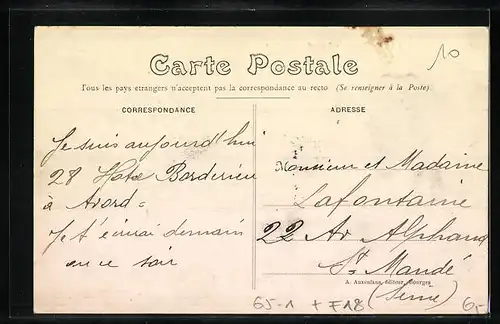 10
Carte Postale
Tous les pays étrangers n'acceptent pas la correspondance au recto (Se renseigner à la Poste)
CORRESPONDANCE
ADRESSE
Je suis aujourd'hui
28 Hotel Borderieu
à Avord =
Je t'écrirai demain
ou ce soir
Monsieur et Madame
Lafontaine
22 Av Alphand
St Mandé
(Seine)
A. Auxenfans, éditeur, Bourges
65-1 + F18
6,-